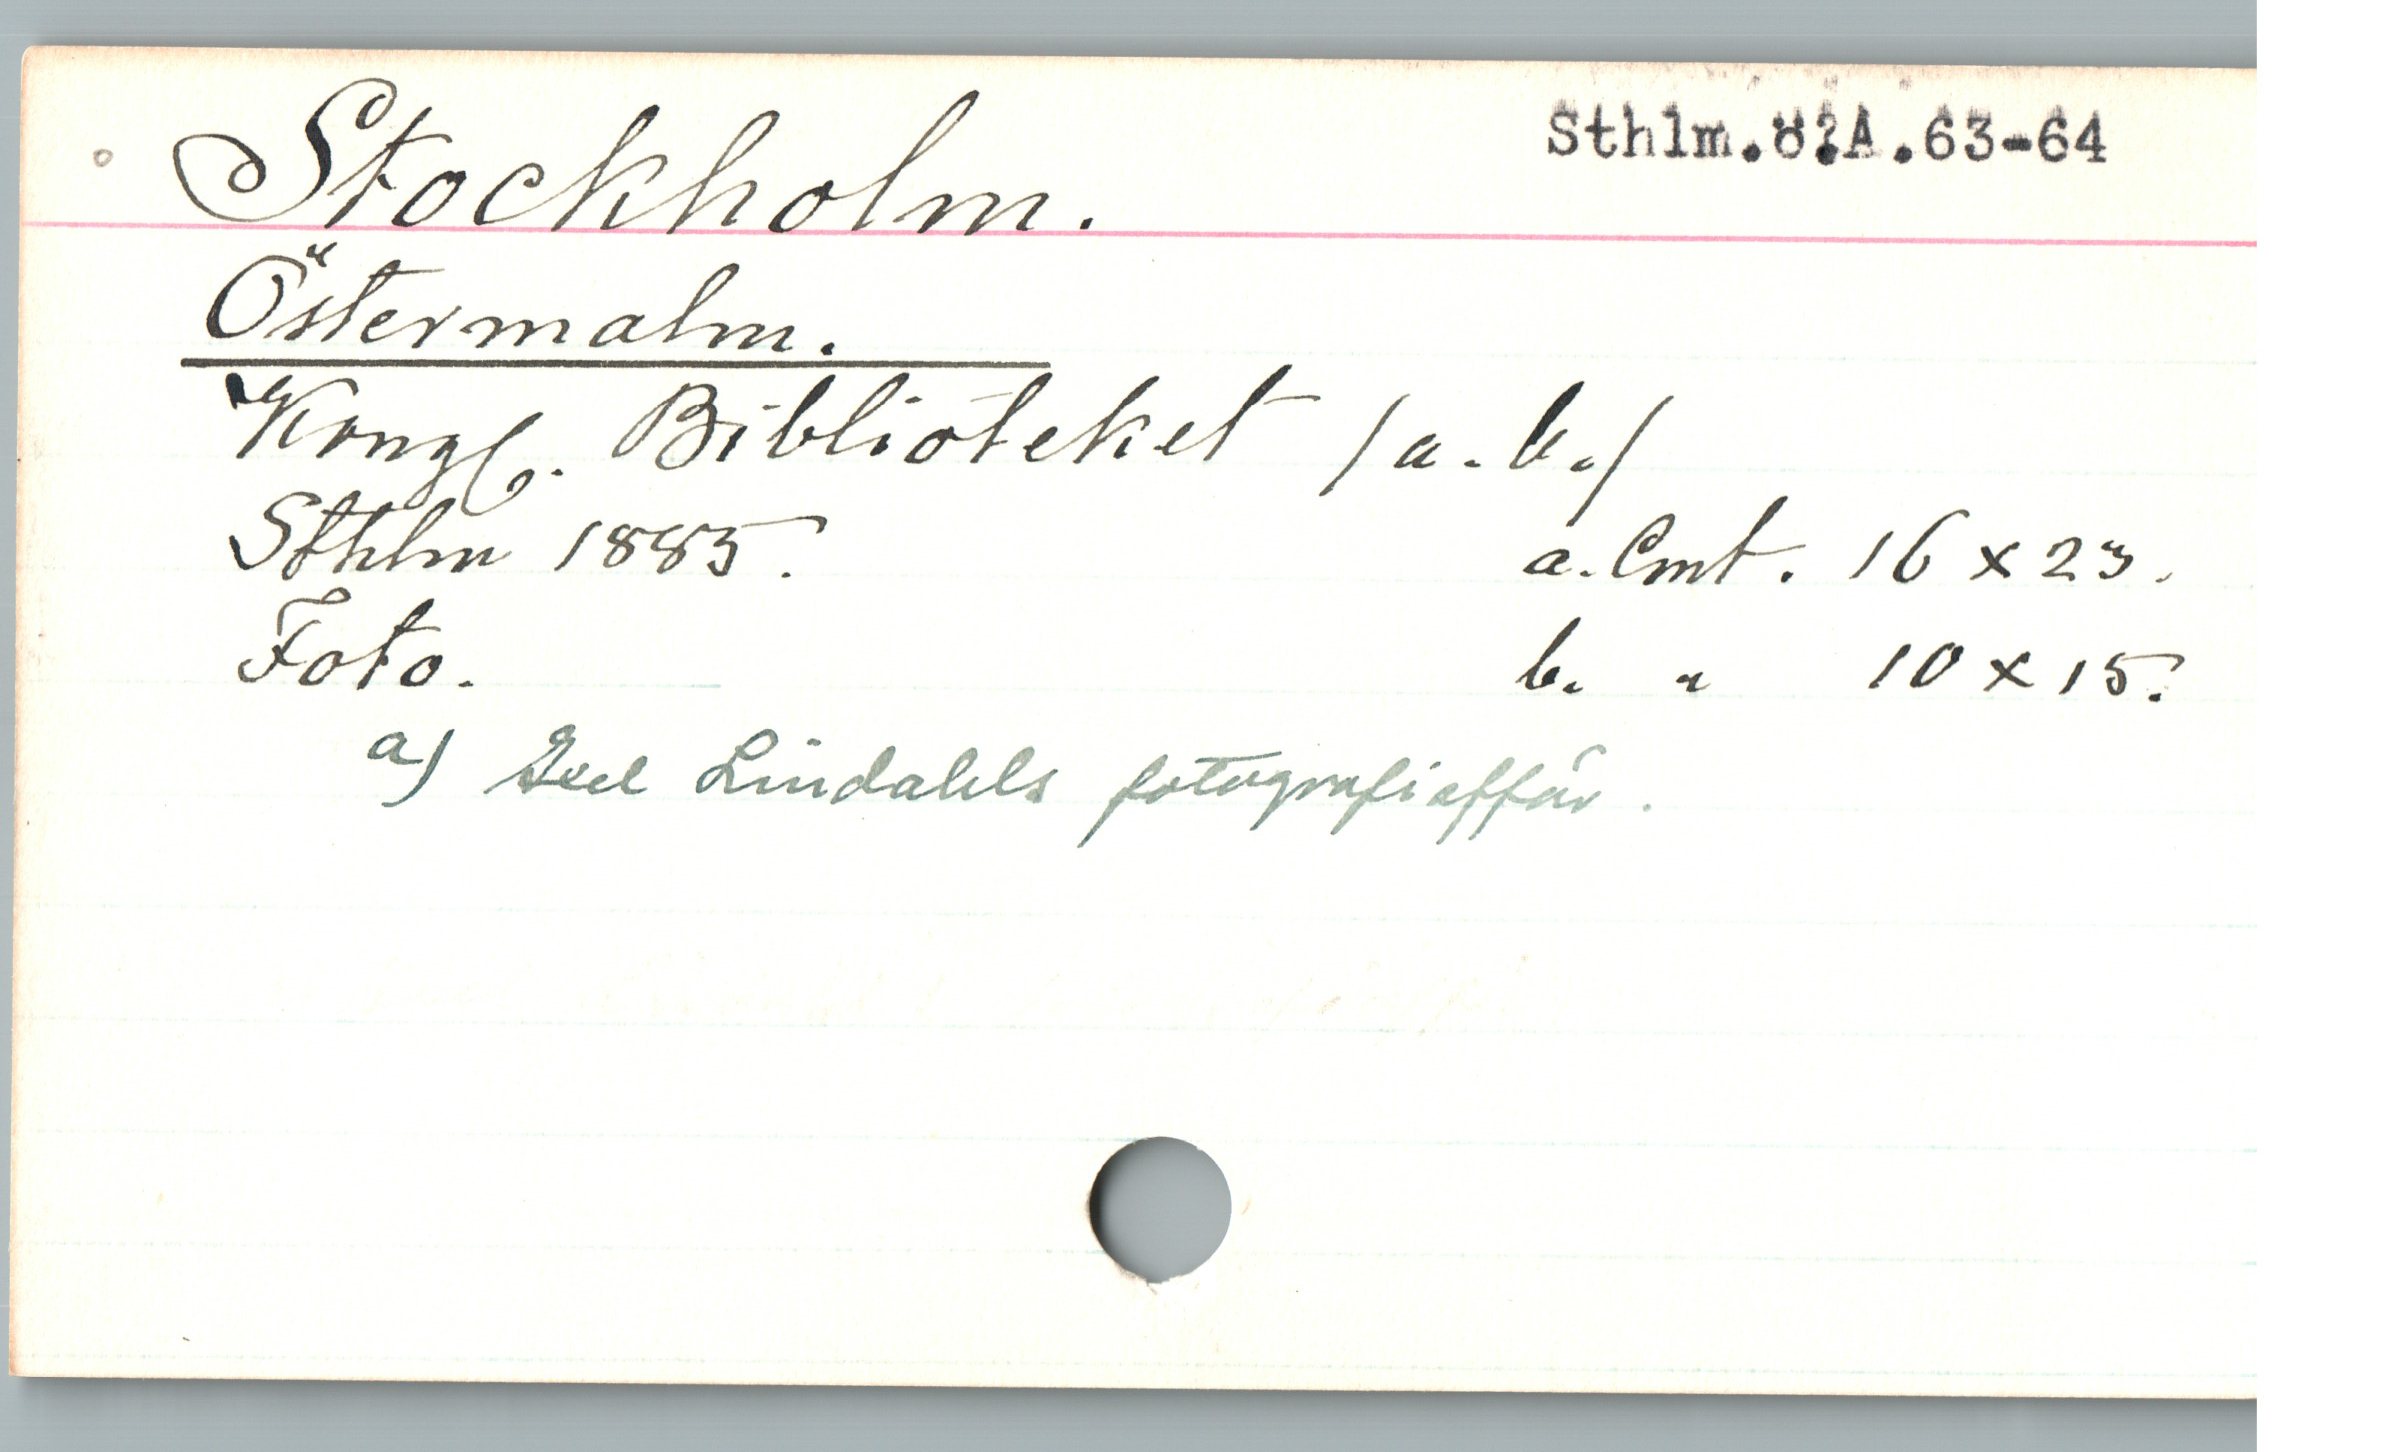 Stockholm.
Sthlm.8?A.63-64
Östermalm.
Kongl. Biblioteket /a. b./
Sthlm 1885.
a. Cmt. 16 x 23.
Foto.
b. " 10 x 15.
a) Axel Lindahls fotografiaffär.